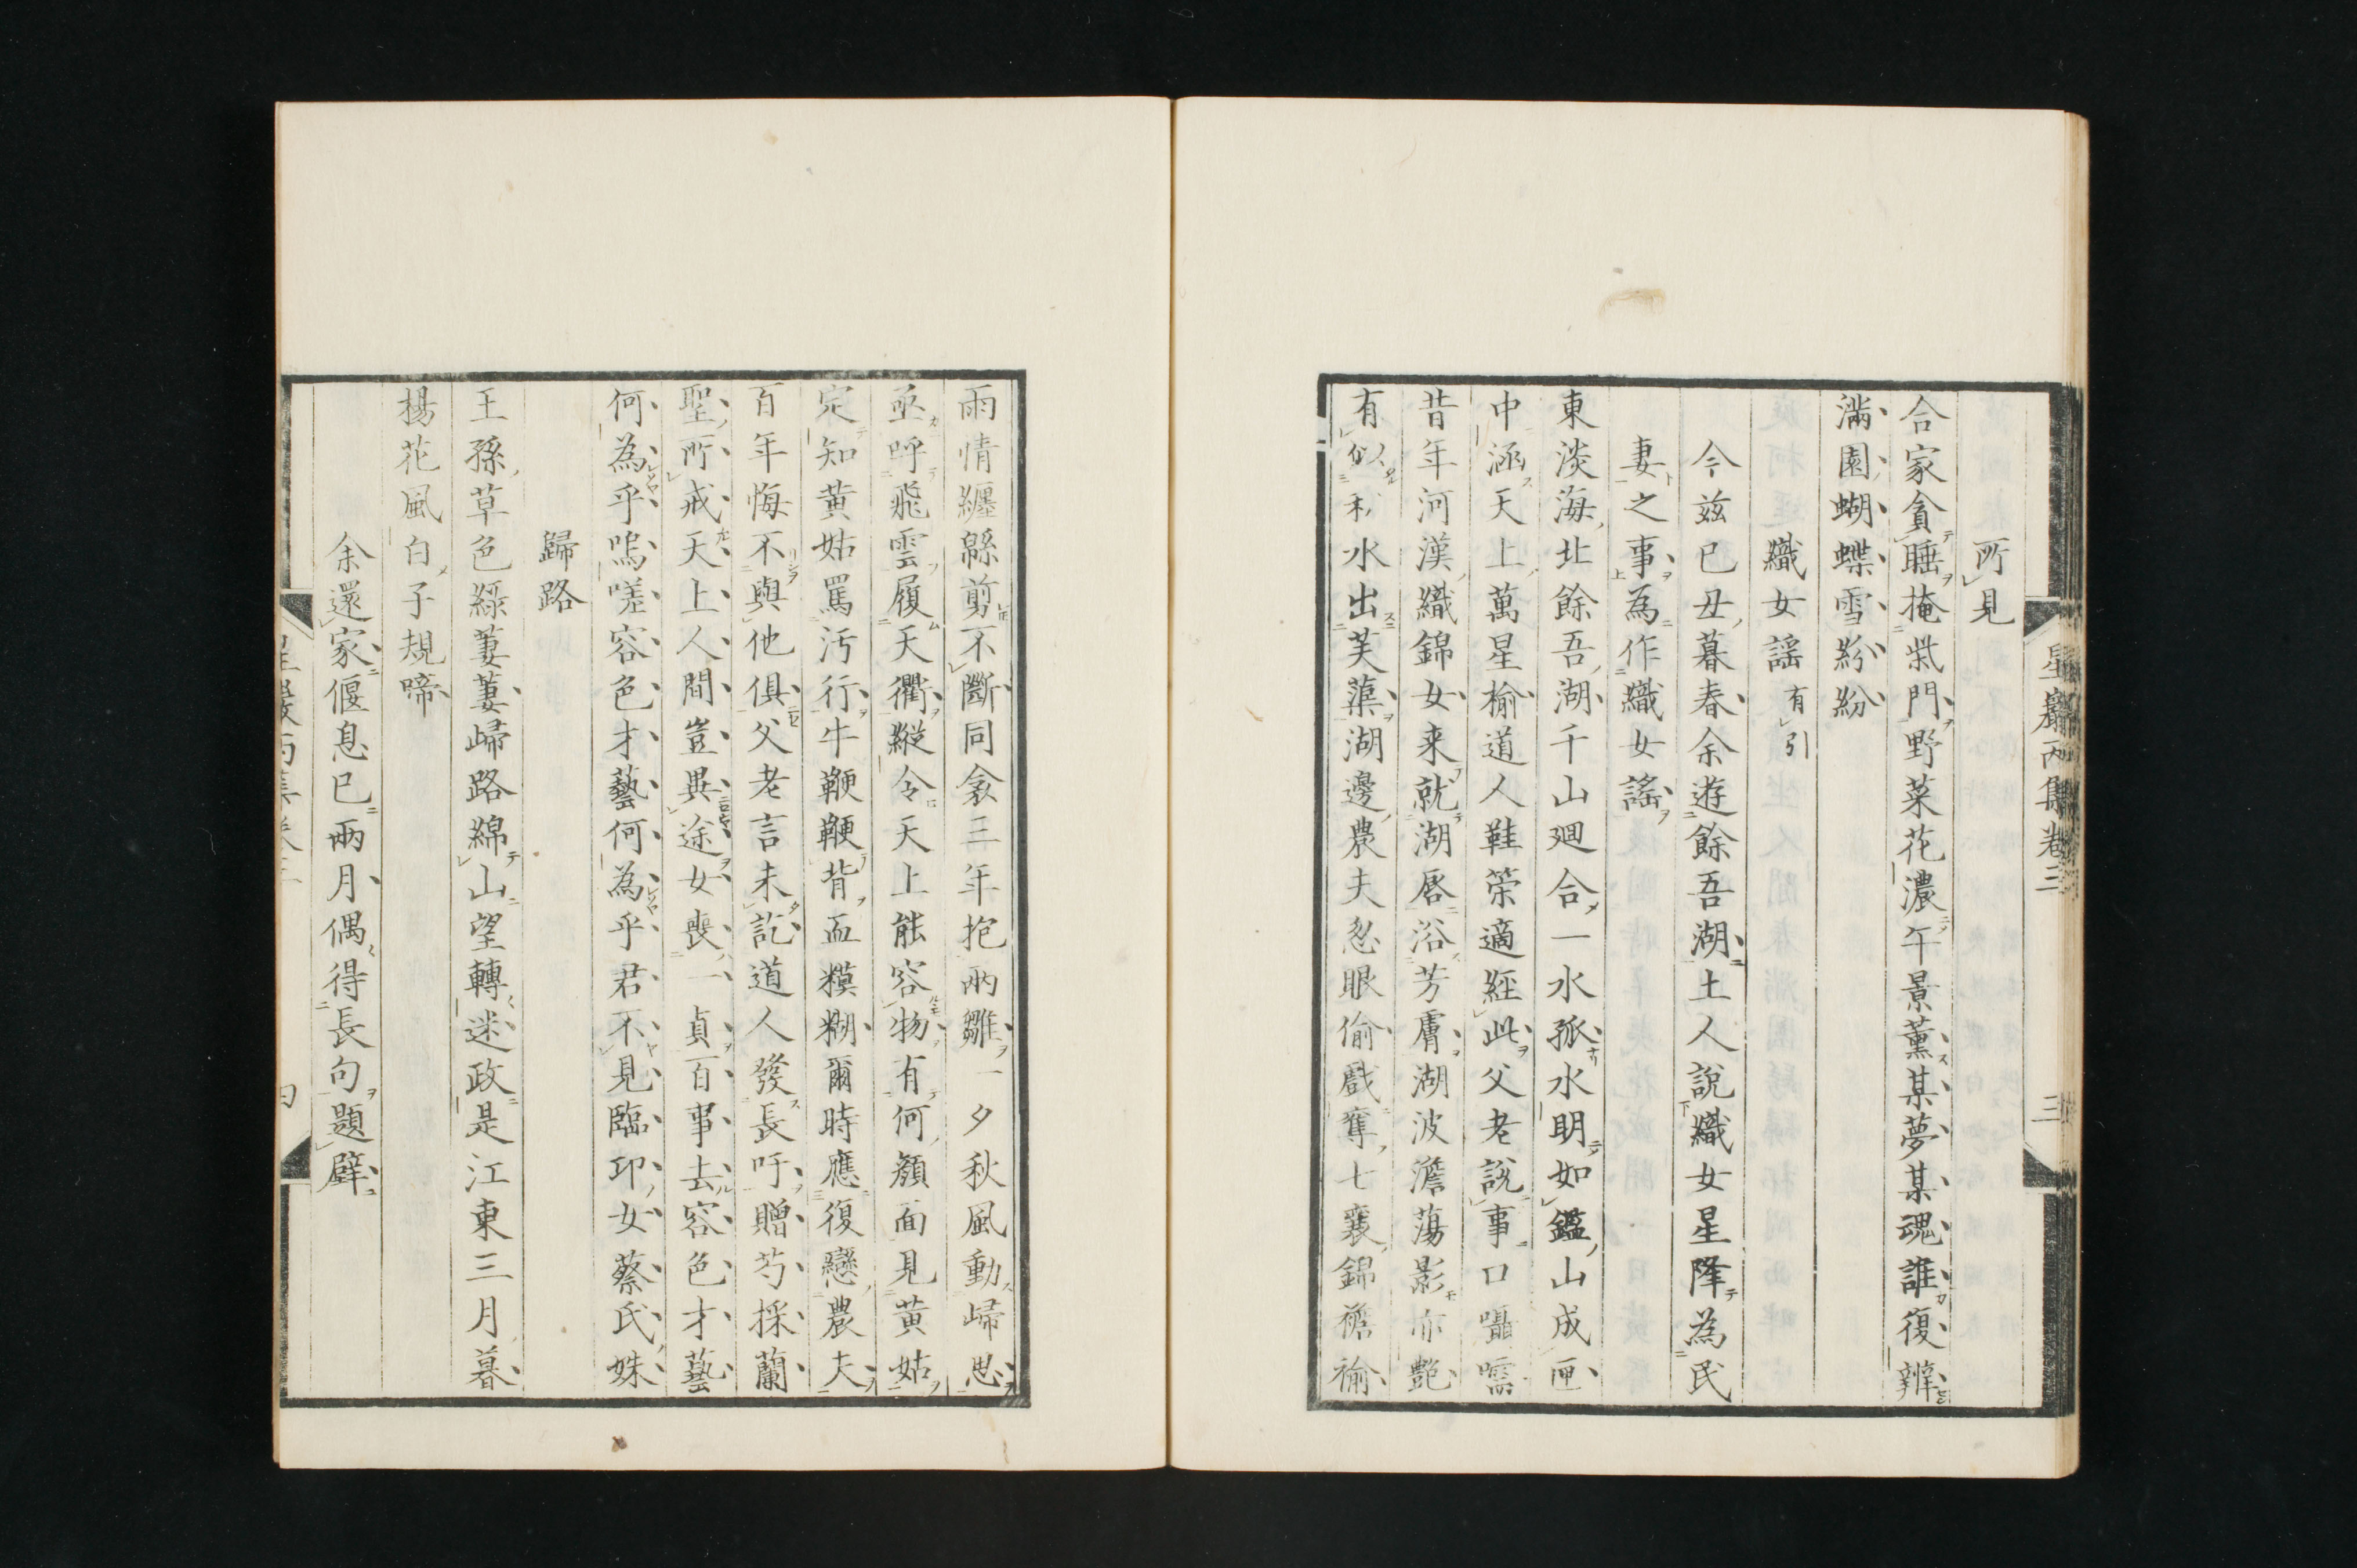 星巖丙集卷三
三
所見
合家貪睡掩柴門野菜花濃午景薰某夢某魂誰復辨
滿園蝴蝶雪紛紛
織女謡有引
今玆己丑暮春余遊餘吾湖土人說織女星降為民
妻之事為作織女謠
東淡海北餘吾湖千山廻合一水孤水明如鑑山成匣
中涵天上萬星榆道人鞋䇿適經此父老說事口囁嚅
昔年河漢織錦女来就湖唇浴芳膚湖波澹蕩影亦艷
有似秋水出芙蕖湖邊農夫忽眼偷戲奪七襄錦襜褕
雨情纏緜剪不斷同衾三年抱兩雛一夕秋風動歸思
亟呼飛雲履天衢縱令天上能容物有何顏面見黃姑
定知黄姑罵汚行牛鞭鞭背血糢糊爾時應復戀農夫
百年悔不與他俱父老言未訖道人發長吁贈芍採蘭
聖所戒天上人間豈異途女喪一貞百事去容色才藝
何為乎嗚嗟容色才藝何為乎君不見臨卭女蔡氏姝
歸路
王孫草色綠萋萋歸路綿山望轉迷政是江東三月暮
楊花風白子規啼
余還家偃息已兩月偶得長句題壁